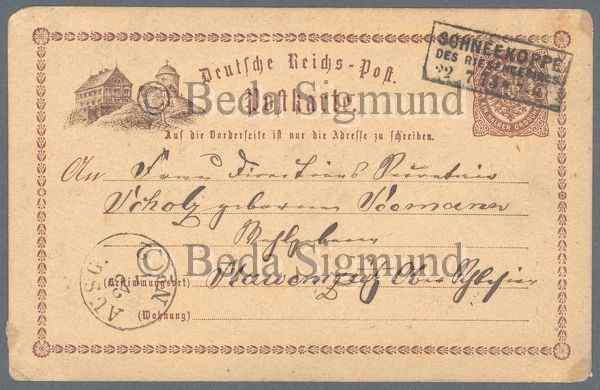 SCHNEEKOPPE
DES RIESENGEBIRGES
22 7 
Deutsche Reichs-Post.
Postkarte.
© Beda Sigmund
Auf die Vorderseite ist nur die Adresse zu schreiben.
An Frau Directions Secretair
Scholz geborene
Wohlgeboren
© Beda Sigmund
AUSG.
(Bestimmungsort) Ober Schlesien
(Wohnung)